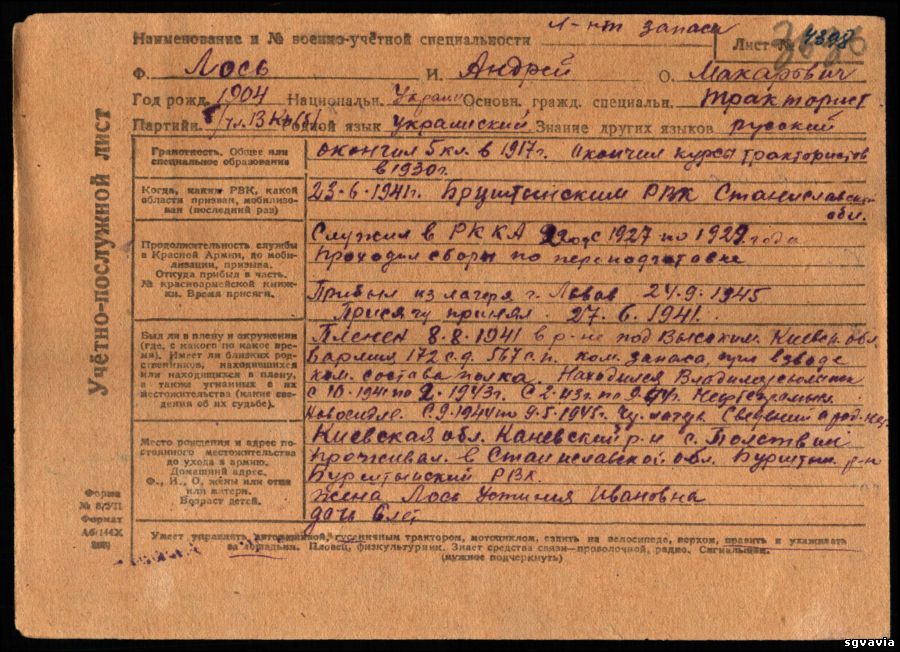 л-нт запаса
Наименование и № военно-учётной специальности
Лист № 4398
Ф. Лось И. Андрей О. Макарович
Год рожд. 1904 Национальн. Украин Основн. гражд. специальн. тракторист
Партийн. Родной язык украинский Знание других языков русский
Учётно-послужной лист
Грамотность. Общее или специальное образование
окончил 5 кл. в 1917г. Окончил курсы трактористов
в 1930г.
Когда, каким РВК, какой области призван, мобилизован (последний раз)
23-6-1941г. Бурштынским РВК Станиславской
обл.
Продолжительность службы в Красной Армии, до мобилизации, призыва. Откуда прибыл в часть. № красноармейской книжки. Время присяги.
Служил в РККА с 1927 по 1929 года
Проходил сборы по переподготовке
Прибыл из лагеря г. Львов 24-9-1945
Присягу принял 27.6.1941.
Был ли в плену и окружении (где, с какого по какое время). Имеет ли близких родственников, находившихся или находящихся в плену, а также угнанных с их местожительства (какие сведения об их судьбе).
Пленен 8-8-1941 в р-не под Киевск. обл.
172 с.д. 567 с.п. ком. запаса, взвода
ком. состава полка. Находился
с 10-1941 по 2-1943г. С 2-43г. по 9-44г.
С 9-1944 по 9-5-1945г. Сведений о род. нет
Место рождения и адрес постоянного местожительства до ухода в армию. Домашний адрес. Ф., И., О. жёны или отца или матери. Возраст детей.
Киевская обл. Каневский р-н с.
проживал в Станиславской обл. Бурштын. р-н
Бурштынский РВК
жена Лось Устиния Ивановна
дочь 6 лет
Форма № 8/УП
Формат А6 (144Х
Умеет управлять автомашиной, гусеничным трактором, мотоциклом, ездить на велосипеде, верхом, править и ухаживать
за лошадьми. Пловец, физкультурник. Знает средства связи—проволочной, радио. Сигнальщик.
(нужное подчеркнуть)
sgvavia